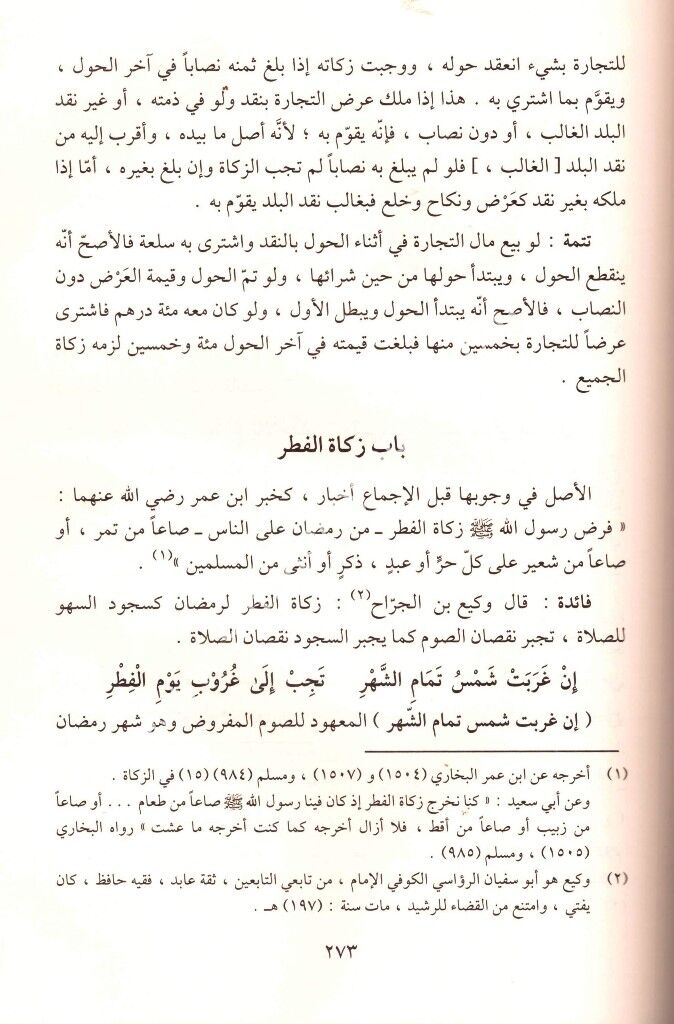 للتجارة بشيء انعقد حوله ، ووجبت زكاته إذا بلغ ثمنه نصاباً في آخر الحول ،
ويقوَّم بما اشتري به . هذا إذا ملك عرض التجارة بنقد ولو في ذمته ، أو غير نقد
البلد الغالب ، أو دون نصاب ، فإنّه يقوّم به ؛ لأنَّه أصل ما بيده ، وأقرب إليه من
نقد البلد [ الغالب ، ] فلو لم يبلغ به نصاباً لم تجب الزكاة وإن بلغ بغيره ، أمّا إذا
ملكه بغير نقد كعَرْض ونكاح وخلع فبغالب نقد البلد يقوّم به .
تتمة : لو بيع مال التجارة في أثناء الحول بالنقد واشترى به سلعة فالأصحّ أنّه
ينقطع الحول ، ويبتدأ حولها من حين شرائها ، ولو تمّ الحول وقيمة العَرْض دون
النصاب ، فالأصح أنّه يبتدأ الحول ويبطل الأول ، ولو كان معه مئة درهم فاشترى
عرضاً للتجارة بخمسين منها فبلغت قيمته في آخر الحول مئة وخمسين لزمه زكاة
الجميع .
باب زكاة الفطر
الأصل في وجوبها قبل الإجماع أخبار ، كخبر ابن عمر رضي الله عنهما :
« فرض رسول الله ﷺ زكاة الفطر ـ من رمضان على الناس ـ صاعاً من تمر ، أو
صاعاً من شعير على كلّ حرٍّ أو عبدٍ ، ذكرٍ أو أنثى من المسلمين »(١) .
فائدة : قال وكيع بن الجرّاح(٢) : زكاة الفطر لرمضان كسجود السهو
للصلاة ، تجبر نقصان الصوم كما يجبر السجود نقصان الصلاة .
إِنْ غَرَبَتْ شَمْسُ تَمَامِ الشَّهْرِ تَجِبْ إِلَىٰ غُرُوْبِ يَوْمِ الْفِطْرِ
( إن غربت شمس تمام الشّهر ) المعهود للصوم المفروض وهو شهر رمضان
(١) أخرجه عن ابن عمر البخاري (١٥٠٤) و (١٥٠٧) ، ومسلم (٩٨٤) (١٥) في الزكاة .
وعن أبي سعيد : « كنا نخرج زكاة الفطر إذ كان فينا رسول الله ﷺ صاعاً من طعام ... أو صاعاً
من زبيب أو صاعاً من أقط ، فلا أزال أخرجه كما كنت أخرجه ما عشت » رواه البخاري
(١٥٠٥) ، ومسلم (٩٨٥) .
(٢) وكيع هو أبو سفيان الرؤاسي الكوفي الإمام ، من تابعي التابعين ، ثقة عابد ، فقيه حافظ ، كان
يفتي ، وامتنع من القضاء للرشيد ، مات سنة : (١٩٧) هـ .
٢٧٣